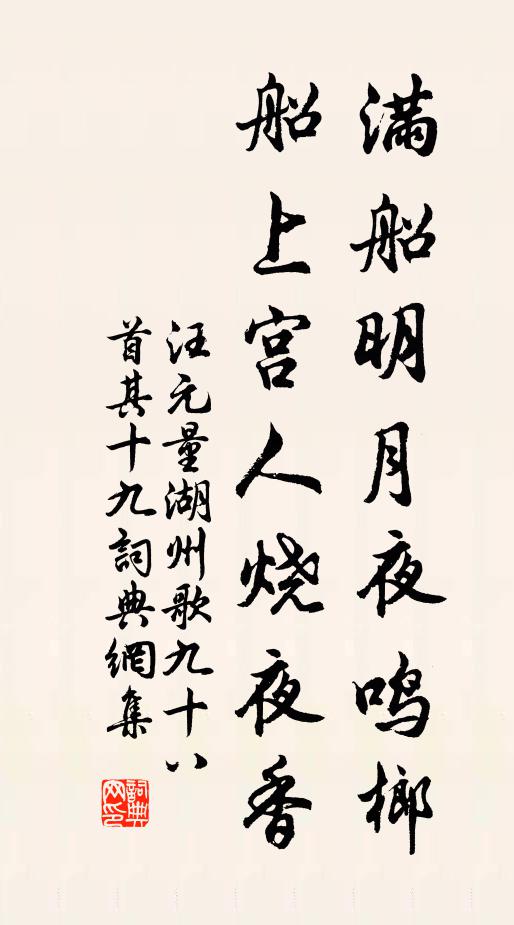 满船明月夜鸣榔
船上宫人烧夜香
汪元量湖州歌九十八
首其十九詞典網集
詞典网印